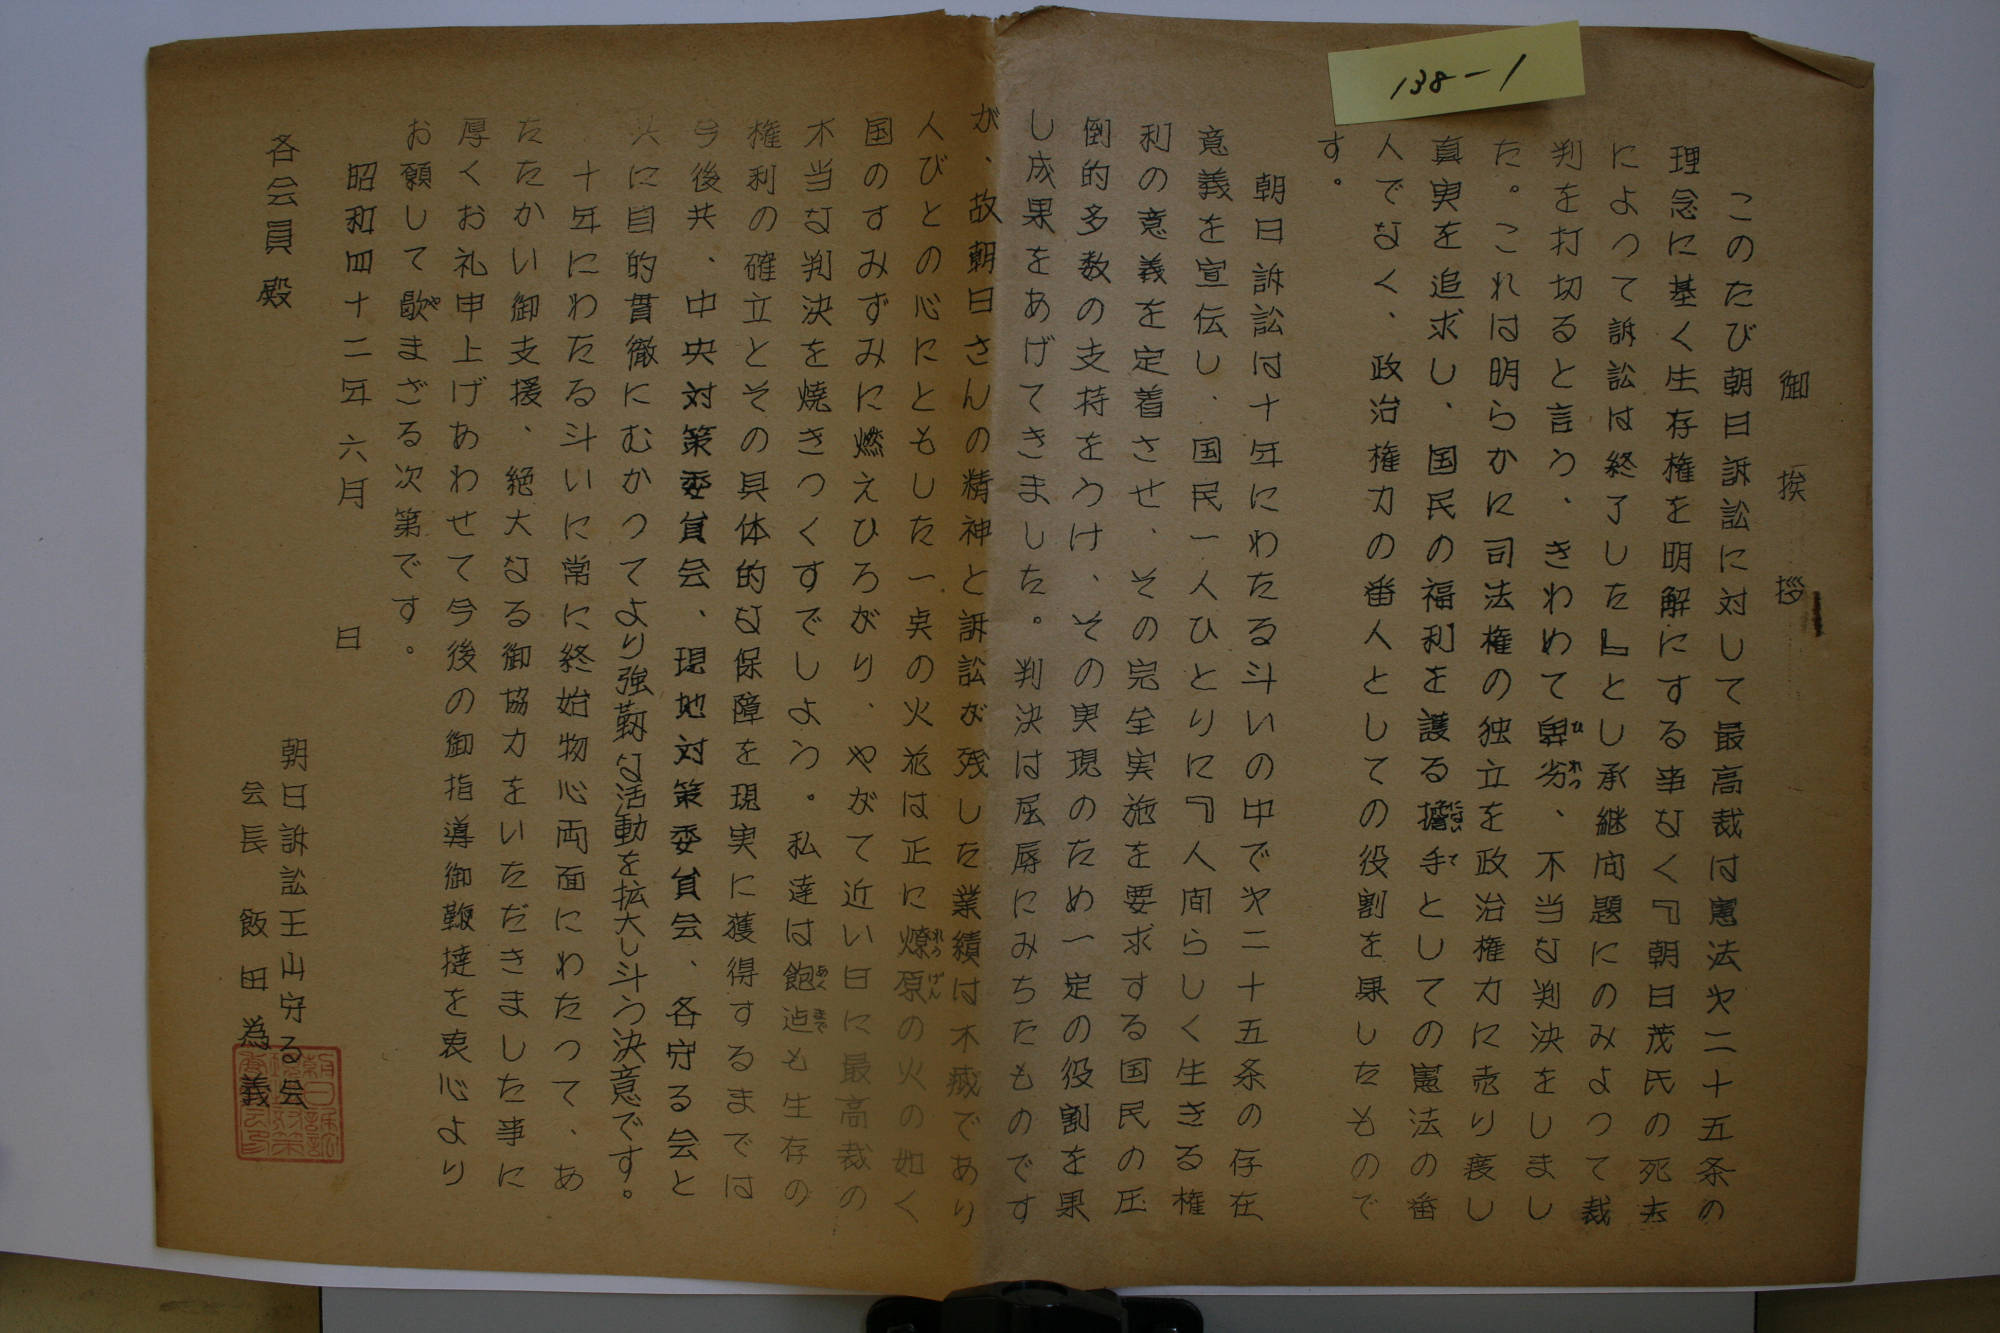 138-1
御挨拶
このたび朝日訴訟に対して最高裁は憲法才二十五条の
理念に基く生存権を明解にする事なく『朝日茂氏の死去
によって訴訟は終了した』とし承継问題にのみよって裁
判を打切ると言う、きわめて卑劣、不当な判決をしまし
た。これは明らかに司法権の独立を政治権力に売り渡し
真実を追求し、国民の福利を護る擔手としての憲法の番
人でなく、政治権力の番人としての役割を果したもので
す。
朝日訴訟は十年にわたる斗いの中で才二十五条の存在、
意義を宣伝し、国民一人ひとりに『人間らしく生きる権
利の意義を定着させ、その完全実施を要求する国民の圧
倒的多数の支持をうけ、その実現のため一定の役割を果
し成果をあげてきました。判決は屈辱にみちたものです
が、故朝日さんの精神と訴訟が残した業績は不滅であり
人びとの心にともした一点の火花は正に燎原の火の如く
国のすみずみに燃えひろがり、やがて近い日に最高裁の
不当な判決を焼きつくすでしよう。私達は飽迠も生存の
権利の確立とその具体的な保障を現実に獲得するまでは
今後共、中央対策委員会、現地対策委員会、各守る会と
共に目的貫徹にむかってより強靱な活動を拡大し斗う決意です。
十年にわたる斗いに常に終始物心両面にわたって、あ
たたかい御支援、絶大なる御協力をいただきました事に
厚くお礼申上げあわせて今後の御指導御鞭撻を衷心より
お願して歇まざる次第です。
昭和四十二年六月　　日
各会員殿
朝日訴訟王山守る会
会長　飯田為義